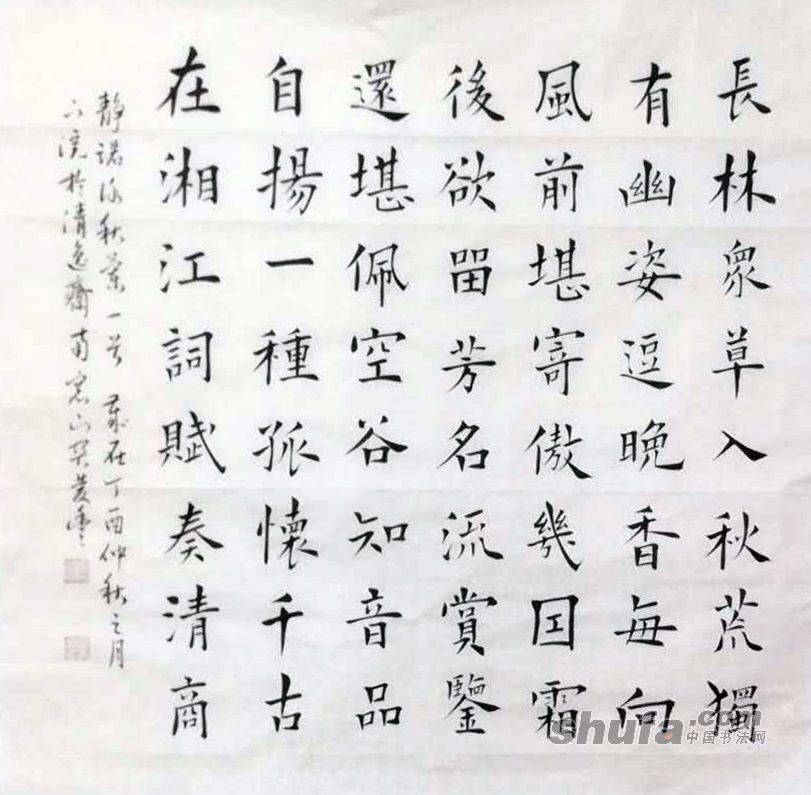 長林眾草入秋荒獨
有幽姿逗晚香每向
風前堪寄傲幾回霜
後欲留芳名流賞鑒
還堪佩空谷知音品
自揚一種孤懷千古
在湘江詞賦奏清商
靜諾詠秋蘭一首 歲在丁酉仲秋之月
於清逸齋南窗
shufa.com
中国书法网